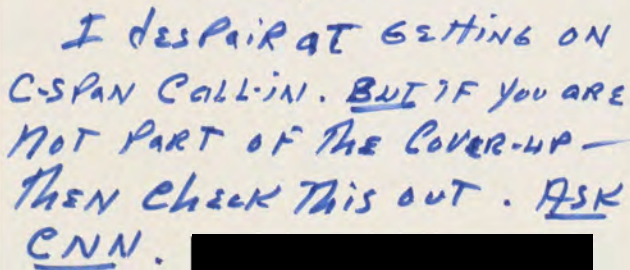 I desPaiR aT GETTiNG ON
C-SPAN CALL-iN. BUT iF YOU ARE
NOT PART OF THE COVER-UP —
THEN CHECK THis OUT. ASK
CNN.